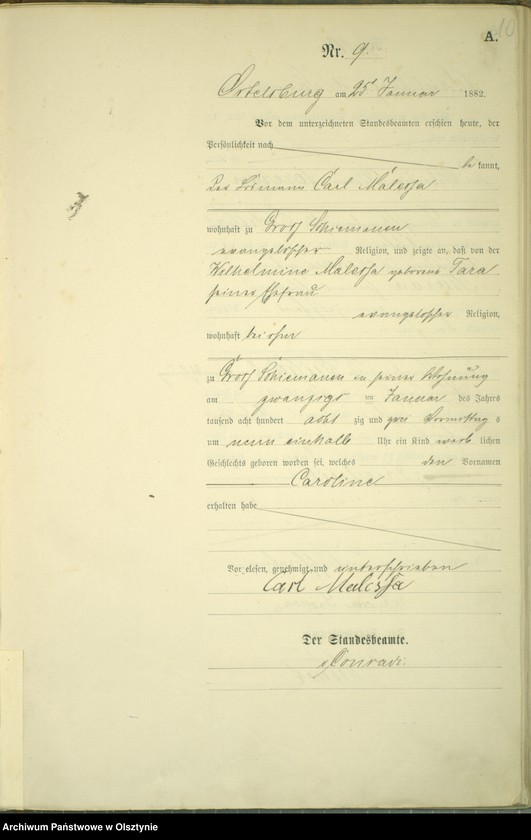 10
A.
Nr. 9.
Ortelsburg am 25 Januar 1882.
Vor dem unterzeichneten Standesbeamten erschien heute, der
Persönlichkeit nach
be kannt,
Carl Malessa
wohnhaft zu Groß Schiemanen
evangelischer Religion, und zeigte an, daß von der
Wilhelmine Malessa geborene Zara
seiner Ehefrau
evangelischer Religion,
wohnhaft bei ihm
zu Groß Schiemanen in seiner Wohnung
am zwanzigst en Januar des Jahres
tausend acht hundert acht zig und zwei Vormittag s
um neun einhalb Uhr ein Kind weib lichen
Geschlechts geboren worden sei, welches den Vornamen
Caroline
erhalten habe
Vorgelesen, genehmigt und unterschrieben
Carl Malessa
Der Standesbeamte.
Conradi.
Archiwum Państwowe w Olsztynie